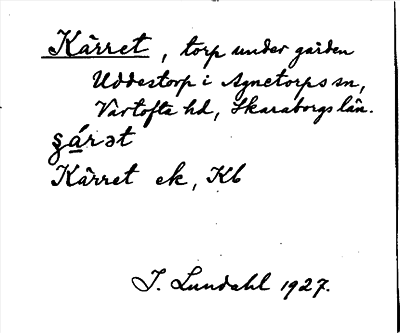 Kärret, torp under gården
Uddestorp i Agnetorps sn,
Vartofta hd, Skaraborgs län.
ʂárət
Kärret ek, Kb
I. Lundahl 1927.